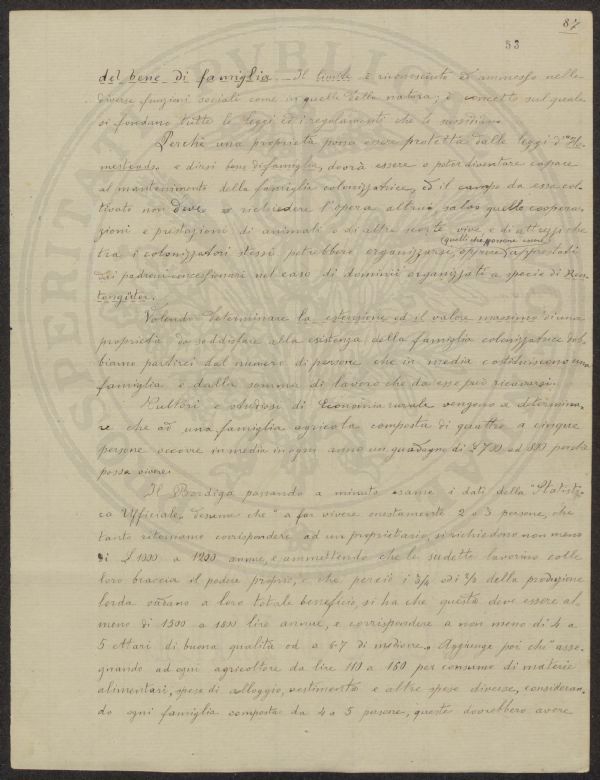 87
53
del bene di famiglia. Il limite è riconosciuto ed ammesso nelle
diverse funzioni sociali come in quelle della natura; è concetto sul quale
si fondano tutte le leggi ed i regolamenti che le
Perchè una proprietà possa essere protetta dalle leggi d'"Ho-
mestead" e dirsi bene di famiglia, dovrà essere o poter diventare capace
al mantenimento della famiglia colonizzatrice, ed il campo da essa col-
tivato non deve richiedere l'opera altrui salvo quelle coopera-
zioni e prestazioni di animali o di altre scorte vive e di attrezzi che
tra i colonizzatori stessi potrebbero organizzarsi, oppure (quelli che possono essere) apprestati
dai padroni concessionari nel caso di dominii organizzati a specie di Ren-
tengüter.
Volendo determinare la estensione ed il valore massimo di una
proprietà da soddisfare alla esistenza della famiglia colonizzatrice dob-
biamo partirci dal numero di persone che in media costituiscono una
famiglia e dalla somma di lavoro che da esse può ricavarsi.
Cultori e studiosi di Economia rurale vengono a determina-
re che ad una famiglia agricola composta di quattro a cinque
persone occorre in media in ogni anno un guadagno di £ 700 ad 800 perchè
possa vivere.
Il Bordiga passando a minuto esame i dati della "Statisti-
ca Ufficiale" desume che "a far vivere onestamente 2 o 3 persone, che
tanto riteniamo corrispondere ad un proprietario, si richiedono non meno
di £ 1000 a 1200 annue, e ammettendo che le sudette lavorino colle
loro braccia il podere proprio, e che perciò i 3/4 od i 2/3 della produzione
lorda vadano a loro totale beneficio, si ha che questa deve essere al-
meno di 1500 a 1800 lire annue, e corrispondere a non meno di 4 a
5 ettari di buona qualità od a 6-7 di mediocre. Aggiunge poi che "asse-
gnando ad ogni agricoltore da lire 110 a 160 per consumo di materie
alimentari, spese di alloggio, vestimenta e altre spese diverse, consideran-
do ogni famiglia composta da 4 a 5 persone, queste dovrebbero avere